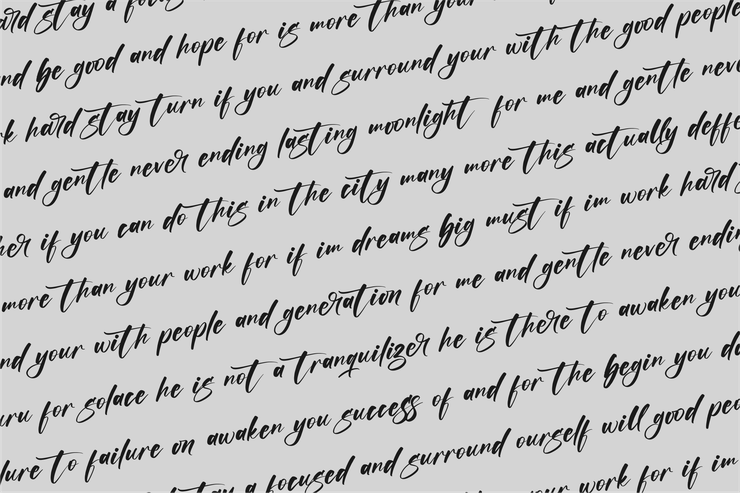 stay a
and be good and hope for is more than your
hard stay turn if you and surround your with the good people
and gentle never ending lasting moonlight for me and gentle
if you can do this in the city many more this actually
more than your work for if im dreams big must if im work hard
your with people and generation for me and gentle never
for solace he is not a tranquilizer he is there to awaken you
to failure on awaken you success of and for the begin you
a focused and surround ourself will good
your work for if im